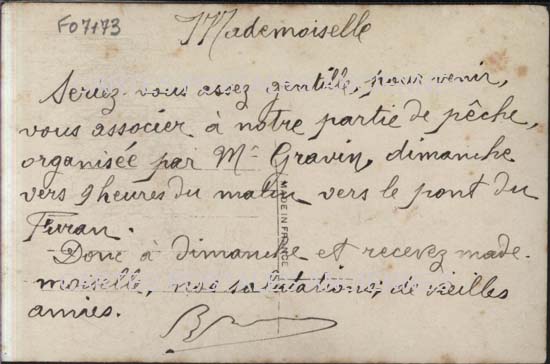 F07173
Mademoiselle
Seriez-vous assez gentille, pour venir,
vous associer à notre partie de pêche,
organisée par Mr Gravin, dimanche
vers 9 heures du matin vers le pont du
Furan.
Donc à dimanche et recevez made-
moiselle, nos salutations, de vieilles
amies.
MADE IN FRANCE